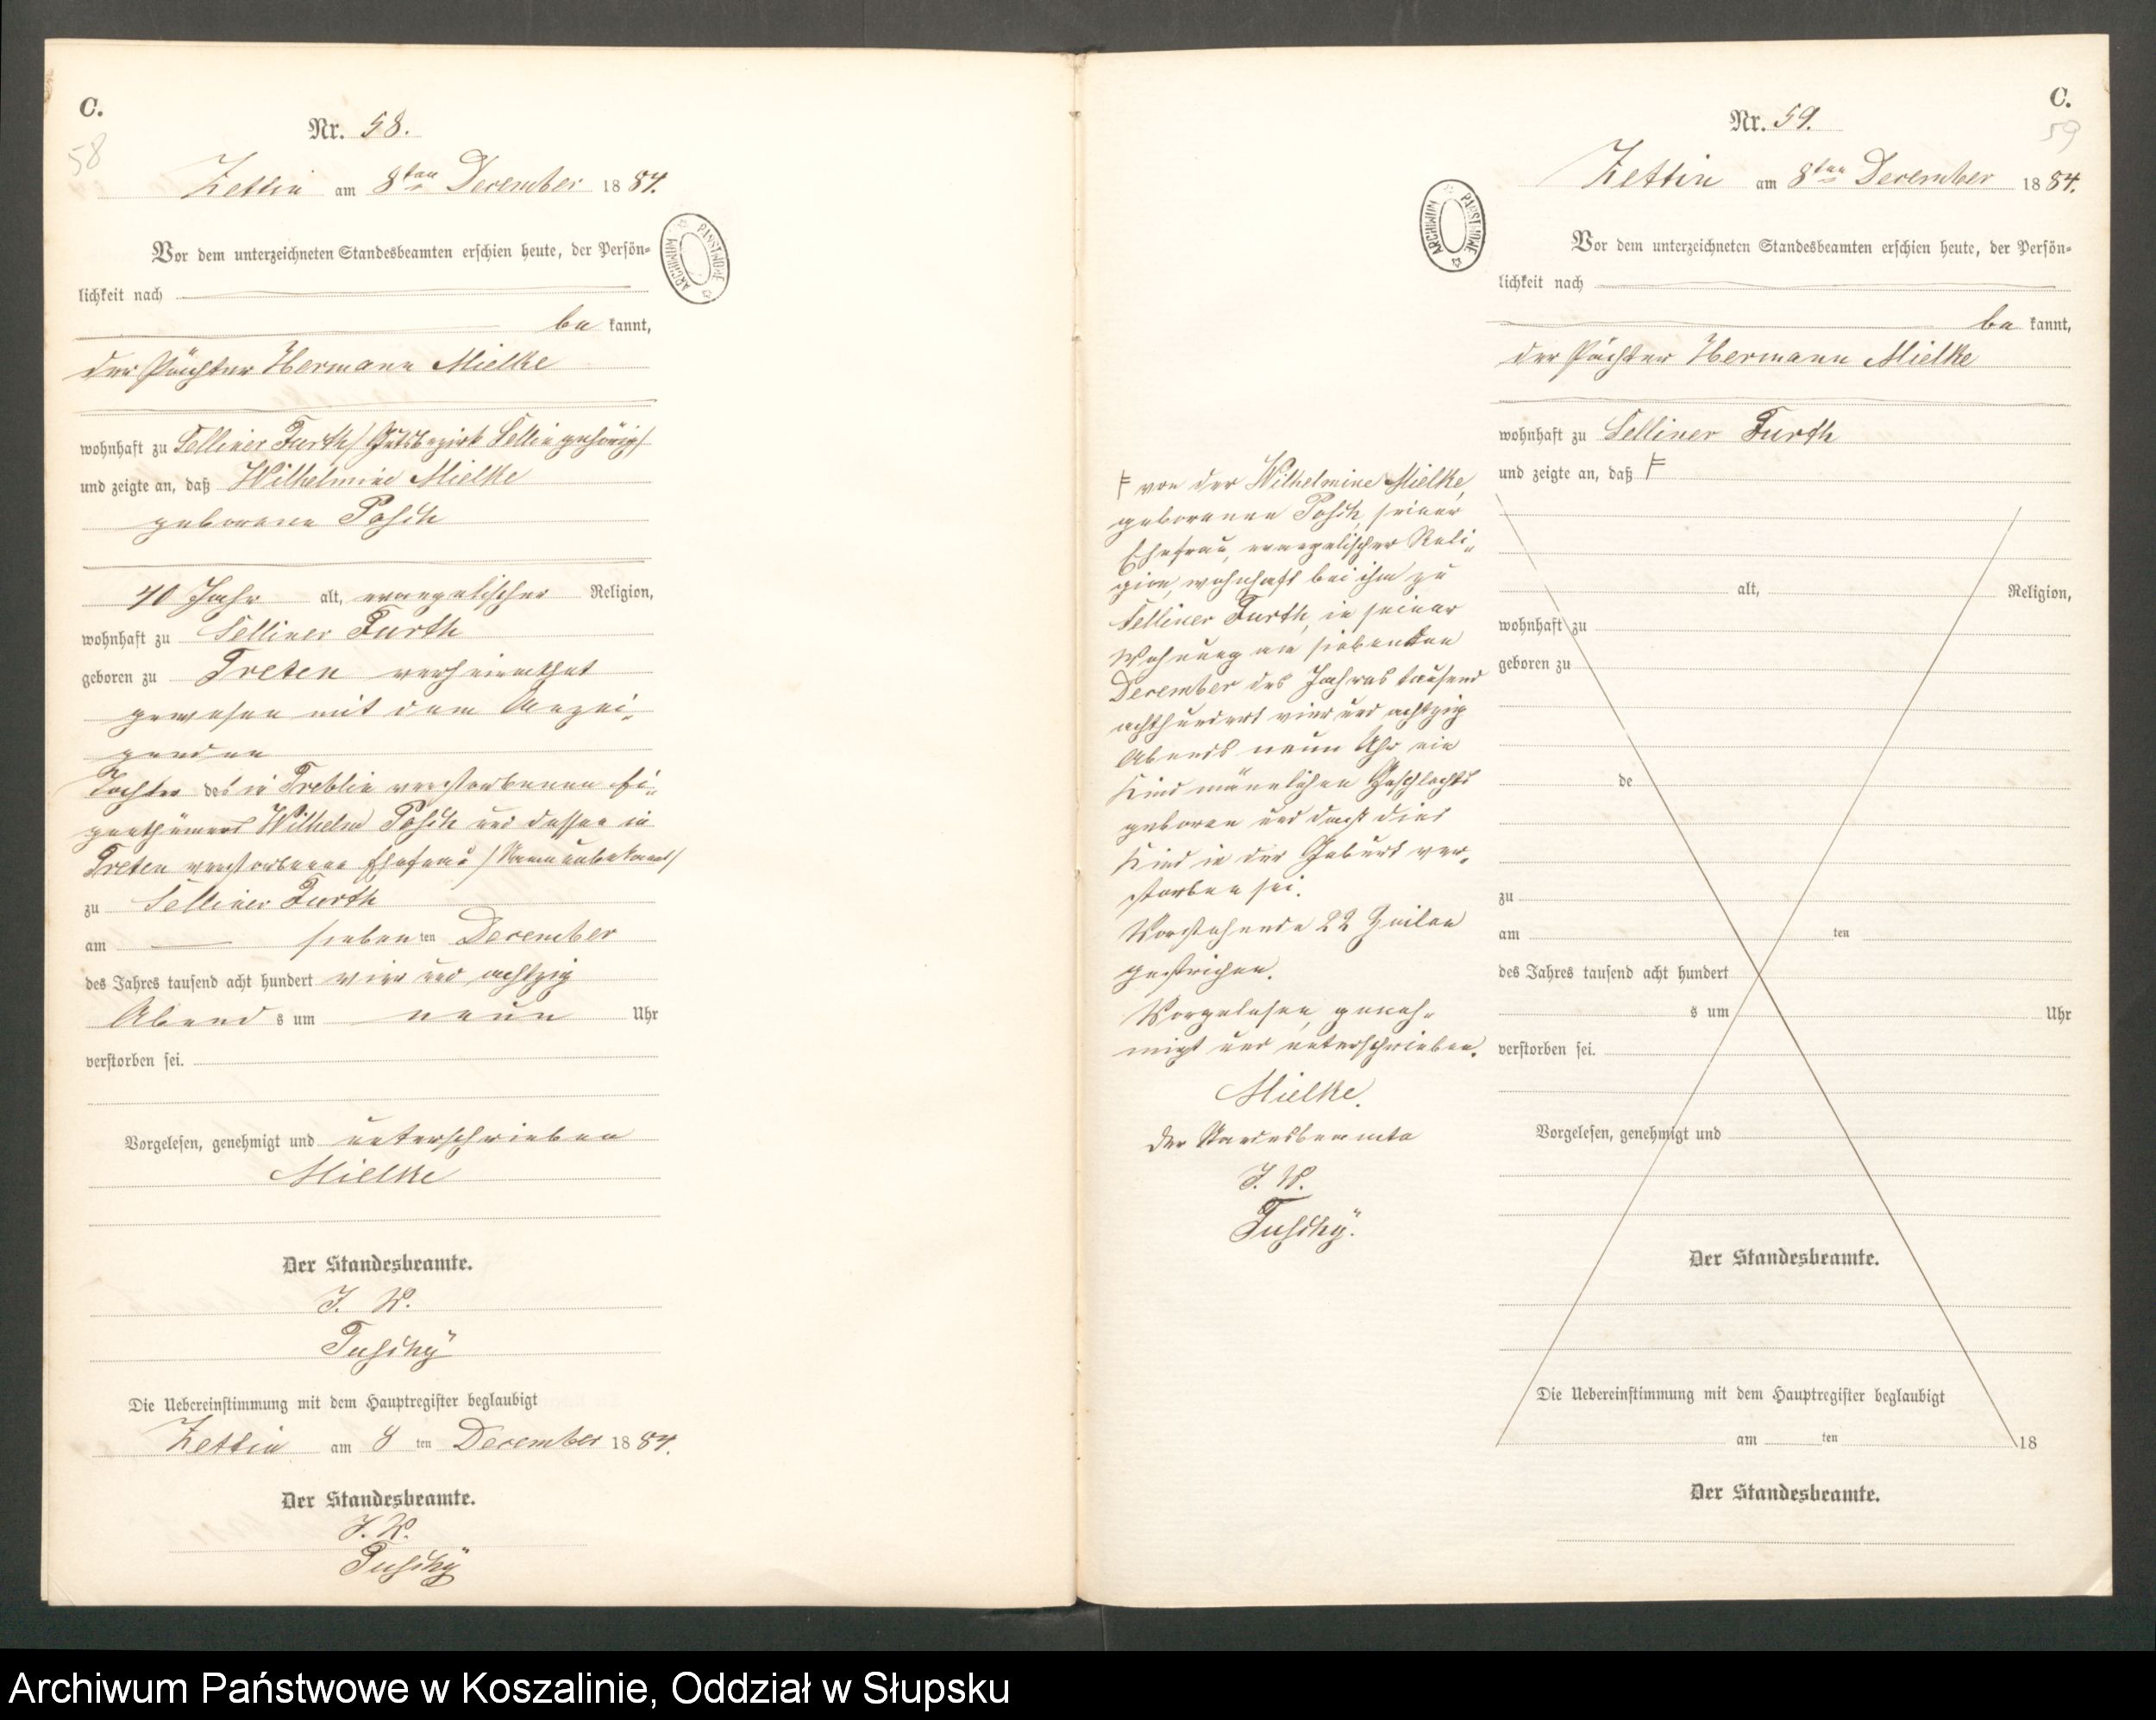 C.
58
Nr. 58.
Zettin am 8ten December 1884.
Vor dem unterzeichneten Standesbeamten erschien heute, der Persön-
lichkeit nach
be kannt,
der Pächter Hermann Mielke
wohnhaft zu Selliner Furth / Gutsbezirk Sellin gehörig /
und zeigte an, daß Wilhelmine Mielke
geborene Posch
40 Jahr alt, evangelischer Religion,
wohnhaft zu Selliner Furth
geboren zu Treten verheirathet
gewesen mit dem Anzei-
genden
Tochter des in Treblin verstorbenen Ei-
genthümers Wilhelm Posch und dessen in
Treten verstorbenen Ehefrau / Name unbekannt /
zu Selliner Furth
am siebenten December
des Jahres tausend acht hundert vier und achtzig
Abend s um neun Uhr
verstorben sei.
Vorgelesen, genehmigt und unterschrieben
Mielke
Der Standesbeamte.
J. V.
Tuschÿ
Die Uebereinstimmung mit dem Hauptregister beglaubigt
Zettin am 8 ten December 1884.
Der Standesbeamte.
J. V.
Tuschÿ
ARCHIWUM PAŃSTWOWE
C.
59
Nr. 59.
Zettin am 8ten December 1884.
Vor dem unterzeichneten Standesbeamten erschien heute, der Persön-
lichkeit nach
be kannt,
der Pächter Hermann Mielke
wohnhaft zu Selliner Furth
und zeigte an, daß
von der Wilhelmine Mielke,
geborenen Posch, seiner
Ehefrau, evangelischer Reli-
gion, wohnhaft bei ihm zu
Selliner Furth, in seiner
Wohnung am siebenten
December des Jahres tausend
achthundert vier und achtzig
Abends neun Uhr ein
Kind männlichen Geschlechts
geboren und daß dies
Kind in der Geburt ver-
storben sei.
Vorstehende 22 Zeilen
gestrichen.
Vorgelesen, geneh-
migt und unterschrieben.
Mielke.
Der Standesbeamte
J. V.
Tuschÿ.
alt, Religion,
wohnhaft zu
geboren zu
de
zu
am ten
des Jahres tausend acht hundert
s um Uhr
verstorben sei.
Vorgelesen, genehmigt und
Der Standesbeamte.
Die Uebereinstimmung mit dem Hauptregister beglaubigt
am ten 18
Der Standesbeamte.
ARCHIWUM PAŃSTWOWE
Archiwum Państwowe w Koszalinie, Oddział w Słupsku